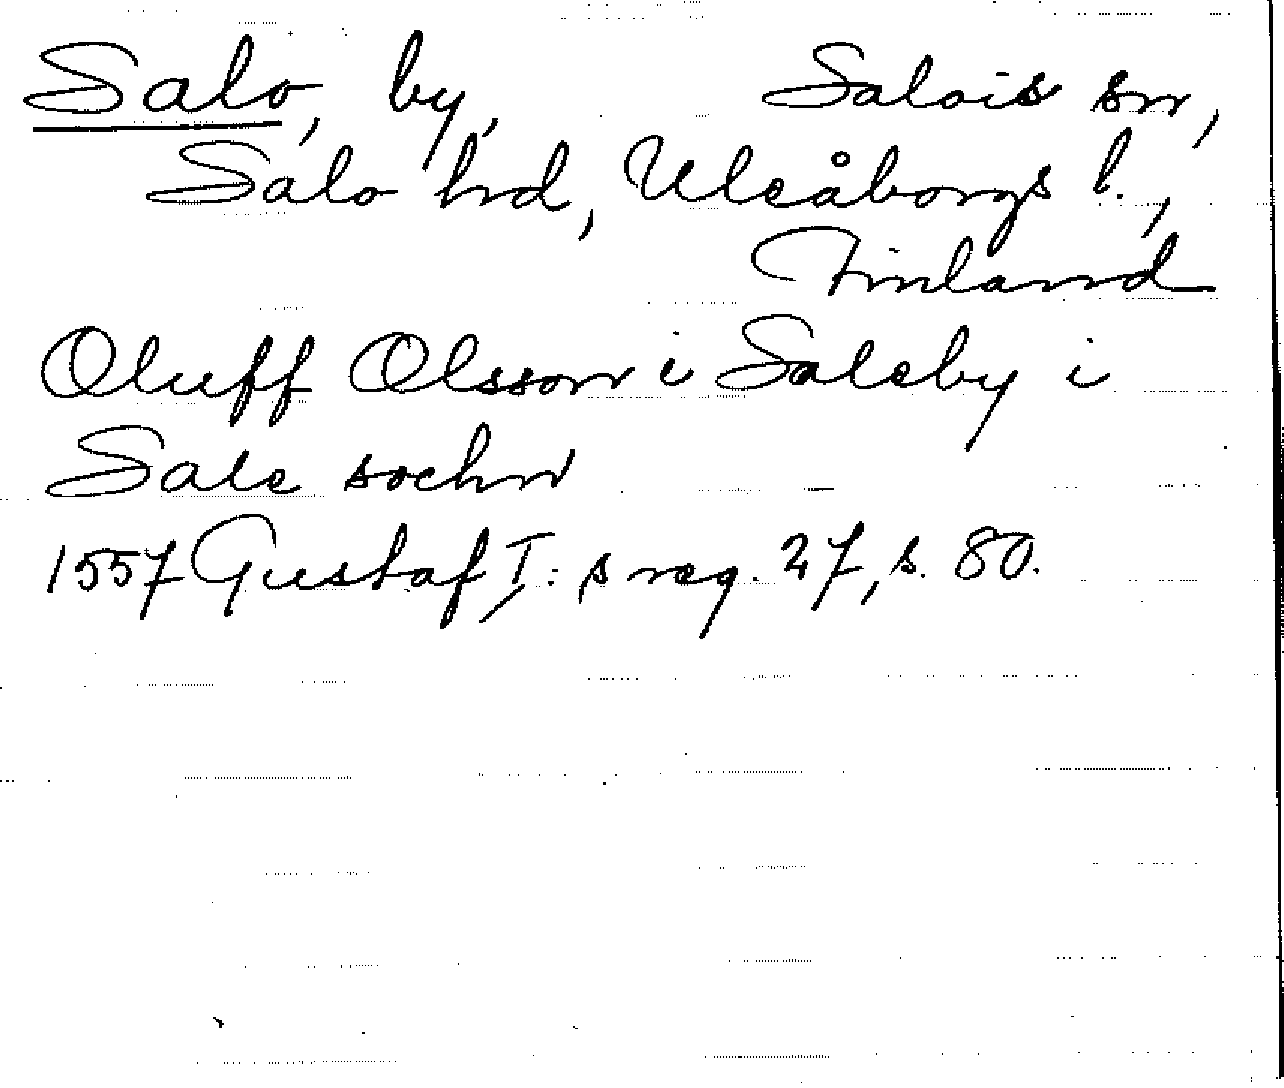 Salo, by, Salois sn,
Salo hrd, Uleåborgs l.,
Finland
Oluff Olsson i Saleby i
Sale sochn
1557 Gustaf I: s reg. 27, s. 80.